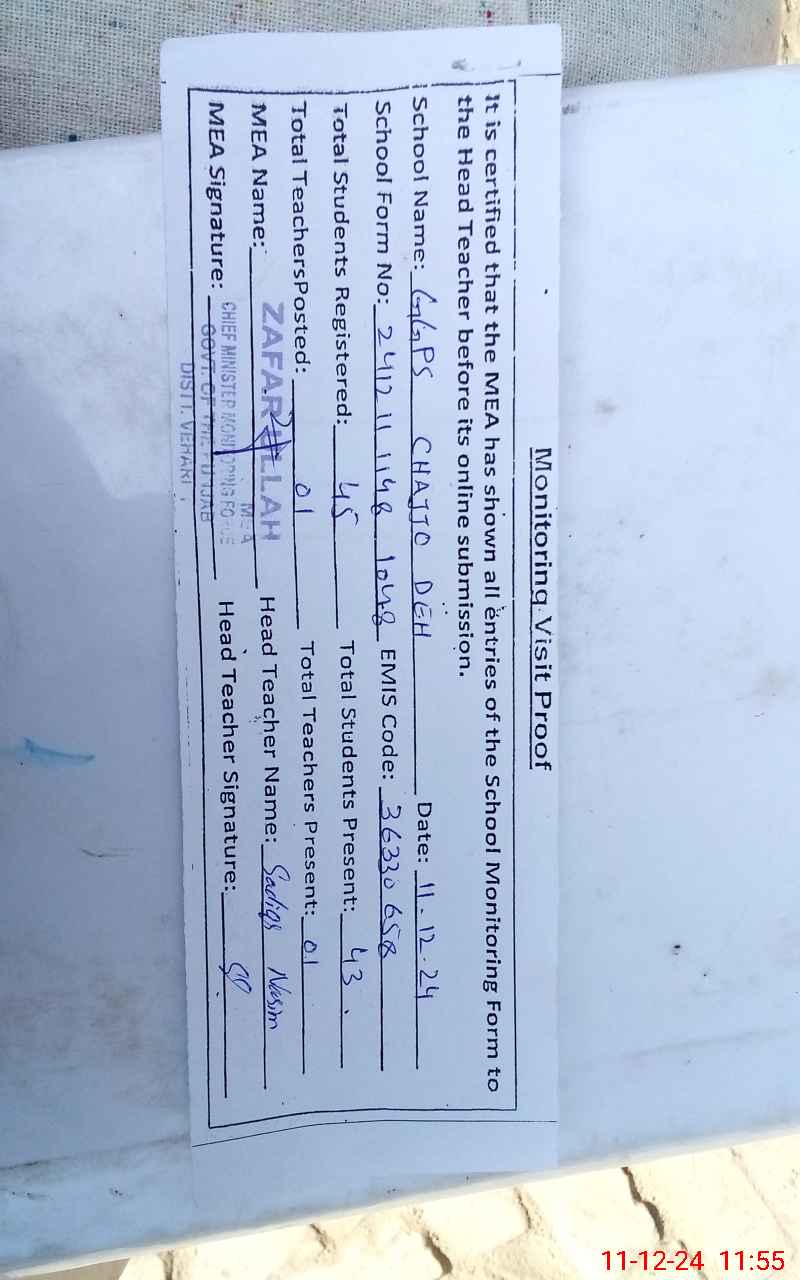 Monitoring Visit Proof
It is certified that the MEA has shown all entries of the School Monitoring Form to
the Head Teacher before its online submission.
School Name: GGPS CHAJJO DEH Date: 11.12.24
School Form No: 2412 11 1148 1048 EMIS Code: 36330658
Total Students Registered: 45 Total Students Present: 43
Total TeachersPosted: 01 Total Teachers Present: 01
MEA Name: ZAFAR ULLAH Head Teacher Name: Sadiqa Nasim
MEA
MEA Signature: Head Teacher Signature:
CHIEF MINISTER MONITORING FORCE
GOVT. OF THE PUNJAB
DISTT. VEHARI.
11-12-24 11:55